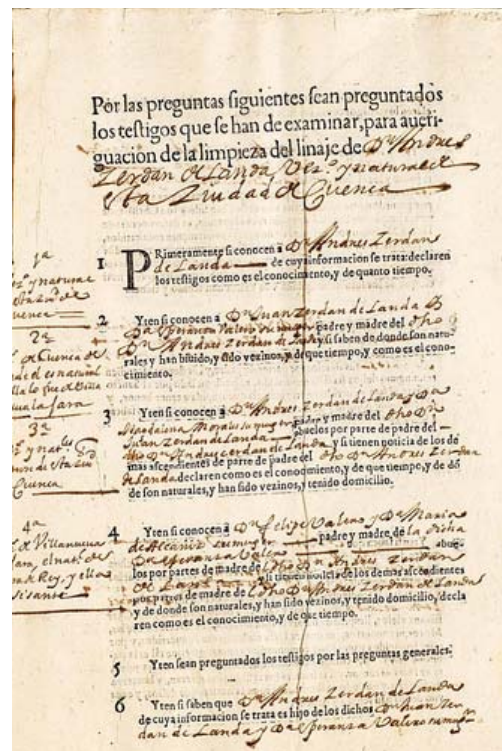 Por las preguntas siguientes sean preguntados
los testigos que se han de examinar, para aueri-
guacion de la limpieza del linaje de Dn Andres
Zerdan de Landa Vezo. y natural de
esta Ziudad de Cuenca
1 PRimeramente si conocen a Dn Andres Zerdan
de Landa de cuya informacion se trata: declaren
los testigos como es el conocimiento, y de quanto tiempo.
1a
y natural
esta
Cuenca
2 Yten si conocen a Dn Juan Zerdan de Landa
Da Esperanza Valero su muger padre y madre del dho
Dn Andres Zerdan de Landa y si saben de donde son natu-
rales y han biuido, y sido vezinos, y de que tiempo, y como es el cono-
cimiento.
2a
de Cuenca
3 Yten si conocen a Dn Andres Zerdan de Landa y Da
Magdalena Morales su muger padre y madre del dho Dn
Juan Zerdan de Landa abuelos por parte de padre del
dho Dn Andres Zerdan de Landa y si tienen noticia de los de
mas ascendientes de parte de padre del dho Dn Andres Zerdan
de Landa declaren como es el conocimiento, y de que tiempo, y de dõ
de son naturales, y han sido vezinos, y tenido domicilio.
3a
Cuenca
4 Yten si conocen a Dn Felipe Valero y Da Maria
de Alcañiz su muger padre y madre de la dicha
Da Esperanza Valero abue-
los por partes de madre de dho Dn Andres Zerdan
de Landa si tienen noticia de los demas ascendientes
por partes de madre del dho Dn Andres Zerdan de Landa
y de donde son naturales, y han sido vezinos, y tenido domicilio, decla
ren como es el conocimiento, y de que tiempo.
4a
de Villanueua
y ella
Sisante
5 Yten sean preguntados los testigos por las preguntas generales.
6 Yten si saben que Dn Andres Zerdan de Landa
de cuya informacion se trata es hijo de los dichos Dn Juan Zer
dan de Landa y Da Esperanza Valero su muger